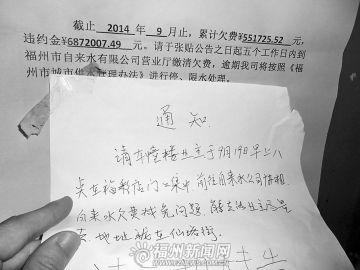 截止 2014 年 9 月止，累计欠费¥551725.52 元，
违约金¥6872007.49 元。请于张贴公告之日起五个工作日内到
福州市自来水有限公司营业厅缴清欠费，逾期我司将按照《福
州市城市供水管理办法》进行停、限水处理。
通知
请本幢楼业主于9月19日早上八
点在福彩店门口集中，前往自来水公司讲租
自来水欠费栈免问题，能去的业主尽量
去，地址就在仙塔街。
福州新闻网